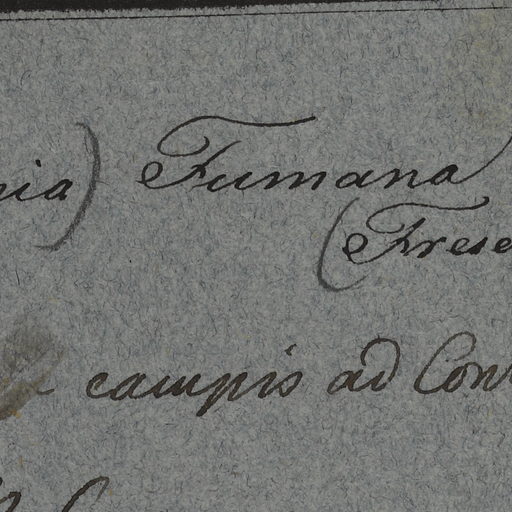 nia) Fumana
(Frese
campis ad Con